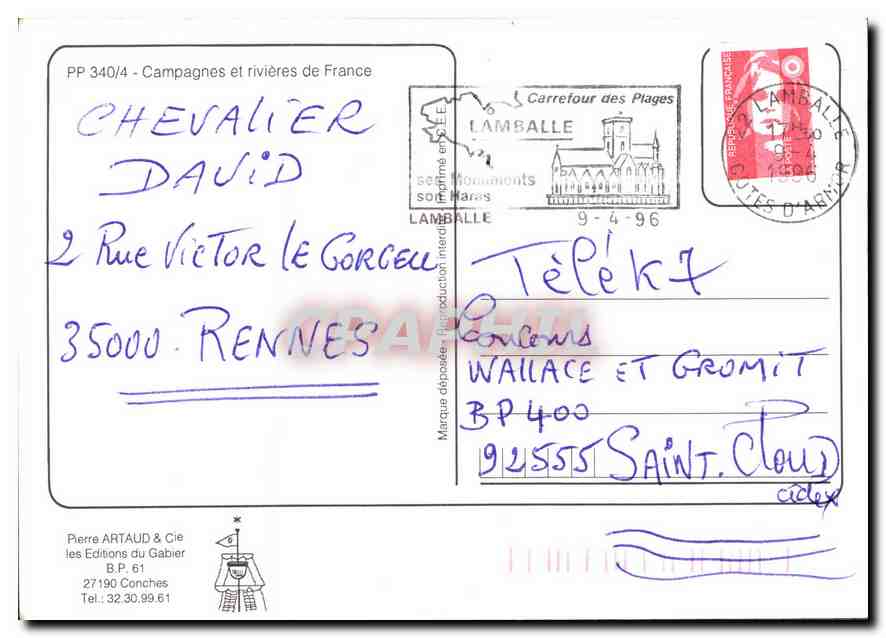 PP 340/4 - Campagnes et rivières de France
CHEVALIER
DAVID
2 Rue VICTOR LE GORGEU
35000 - RENNES
Marque déposée - Reproduction interdite - Imprimé en C.E.E.
Carrefour des Plages
LAMBALLE
ses Monuments
son Haras
LAMBALLE
9-4-96
REPUBLIQUE FRANÇAISE
POSTE
22 LAMBALLE
17H30
9-4
1996
COTES D'ARMOR
Télé K7
Concours
WALLACE ET GROMIT
BP 400
92555 SAINT. CLOUD
cédex
Pierre ARTAUD & Cie
les Editions du Gabier
B.P. 61
27190 Conches
Tel.: 32.30.99.61
CPAPHIL